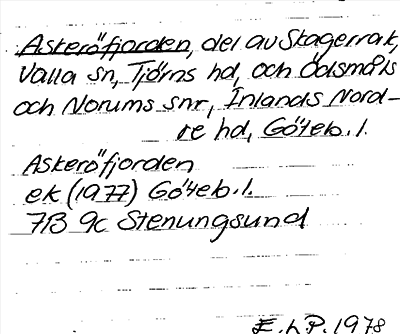 Askeröfjorden, del av Skagerrak,
Valla sn, Tjörns hd, och Ödsmåls
och Norums snr, Inlands Nord-
re hd, Göteb. l.
Askeröfjorden
ek (1977) Göteb. l.
7B 9c Stenungsund
E. hP. 1978